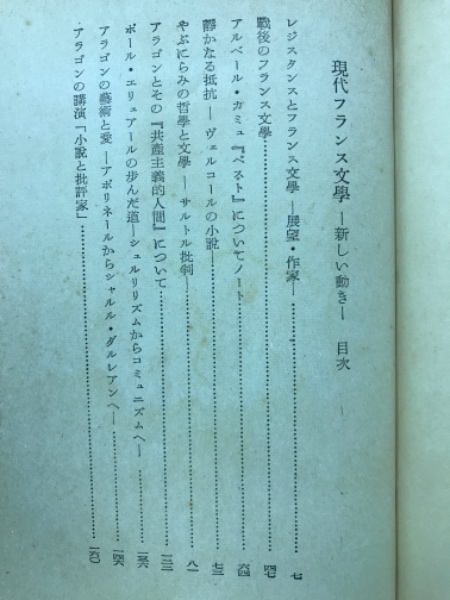 現代フランス文學―新しい動き― 目次
レジスタンスとフランス文學―展望・作家―…………七
戰後のフランス文學…………四七
アルベール・カミュ『ペスト』についてノート…………六四
靜かなる抵抗―ヴェルコールの小説―…………七三
やぶにらみの哲學と文學―サルトル批判…………八一
アラゴンとその『共產主義的人間』について…………
ポール・エリュアールの歩んだ道―シュルリアリズムからコミュニズムへ―…………
アラゴンの藝術と愛―アポリネールからシャルル・ダルレアンへ―…………一四六
アラゴンの講演「小説と批評家」…………一六〇